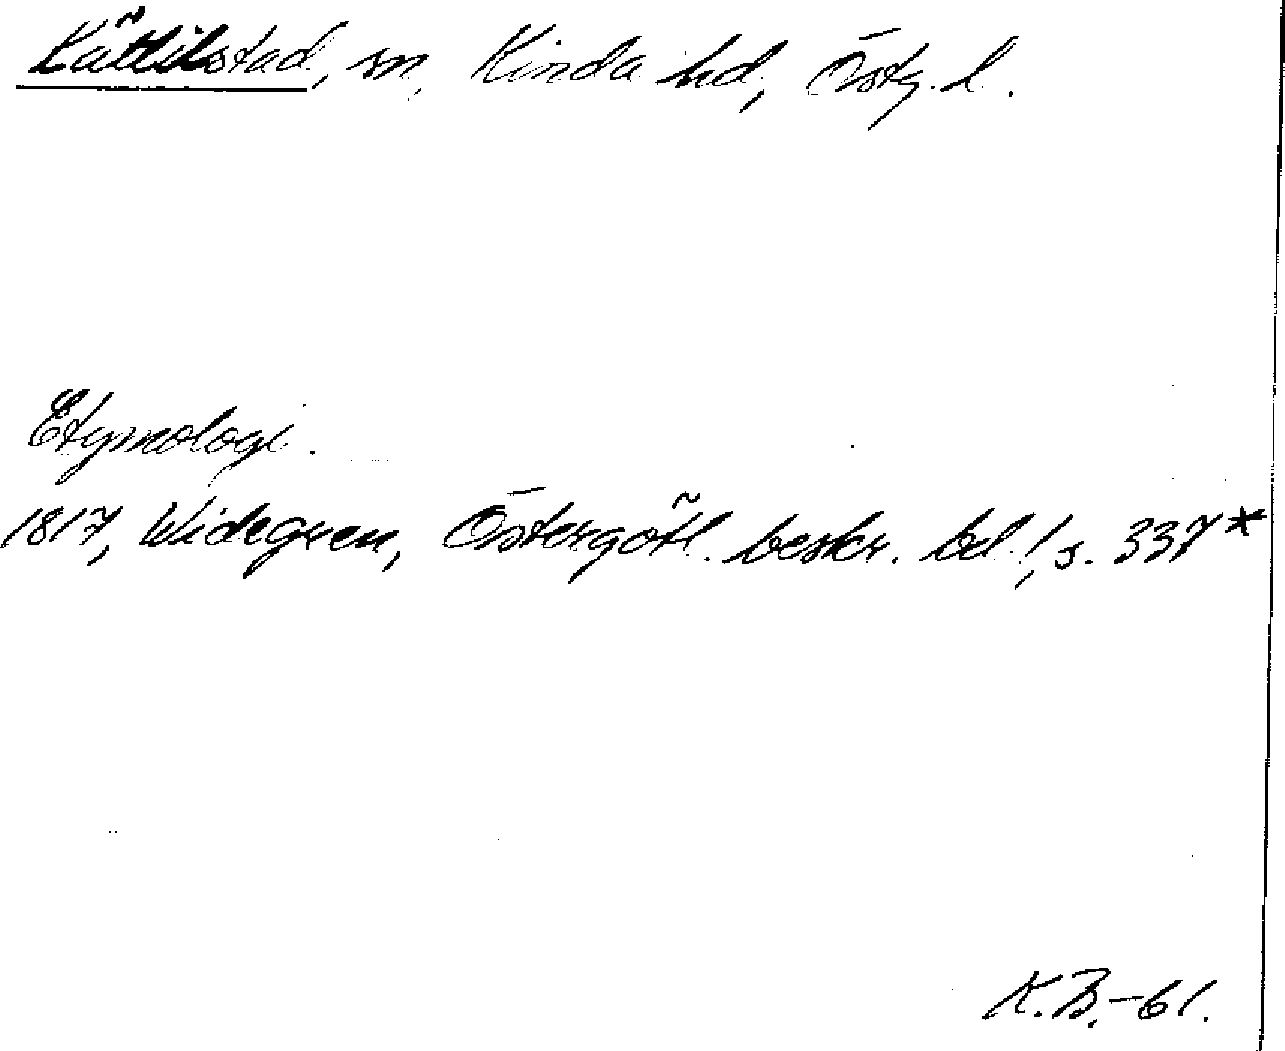 Kättilstad, sn, Kinda hd, Östg. l.
Etymologi.
1817, Widegren, Östergötl. beskr. bd 1, s. 337*
K.B.-61.